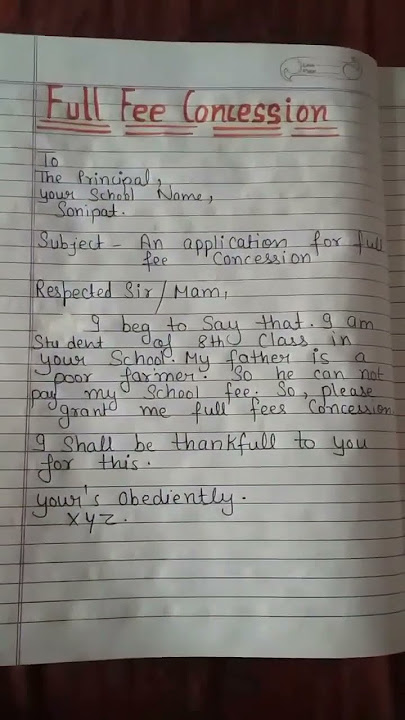 Full Fee Concession
To
The Principal,
your School Name,
Sonipat.
Subject - An application for full
fee Concession
Respected Sir/Mam,
I beg to Say that. I am
Student of 8th Class in
your School. My father is a
poor farmer. So he can not
pay my School fee. So, please
grant me full fees Concession
I Shall be thankfull to you
for this.
your's obediently.
xyz.